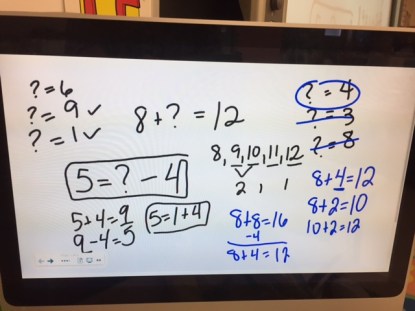 ? = 6
? = 9 ✓
? = 1 ✓
8 + ? = 12
? = 4
? = 3
? = 8
8, 9, 10, 11, 12
2, 1
5 = ? - 4
5+4=9
9-4=5
5=1+4
8+8=16
-4
8+4=12
8+4=12
8+2=10
10+2=12